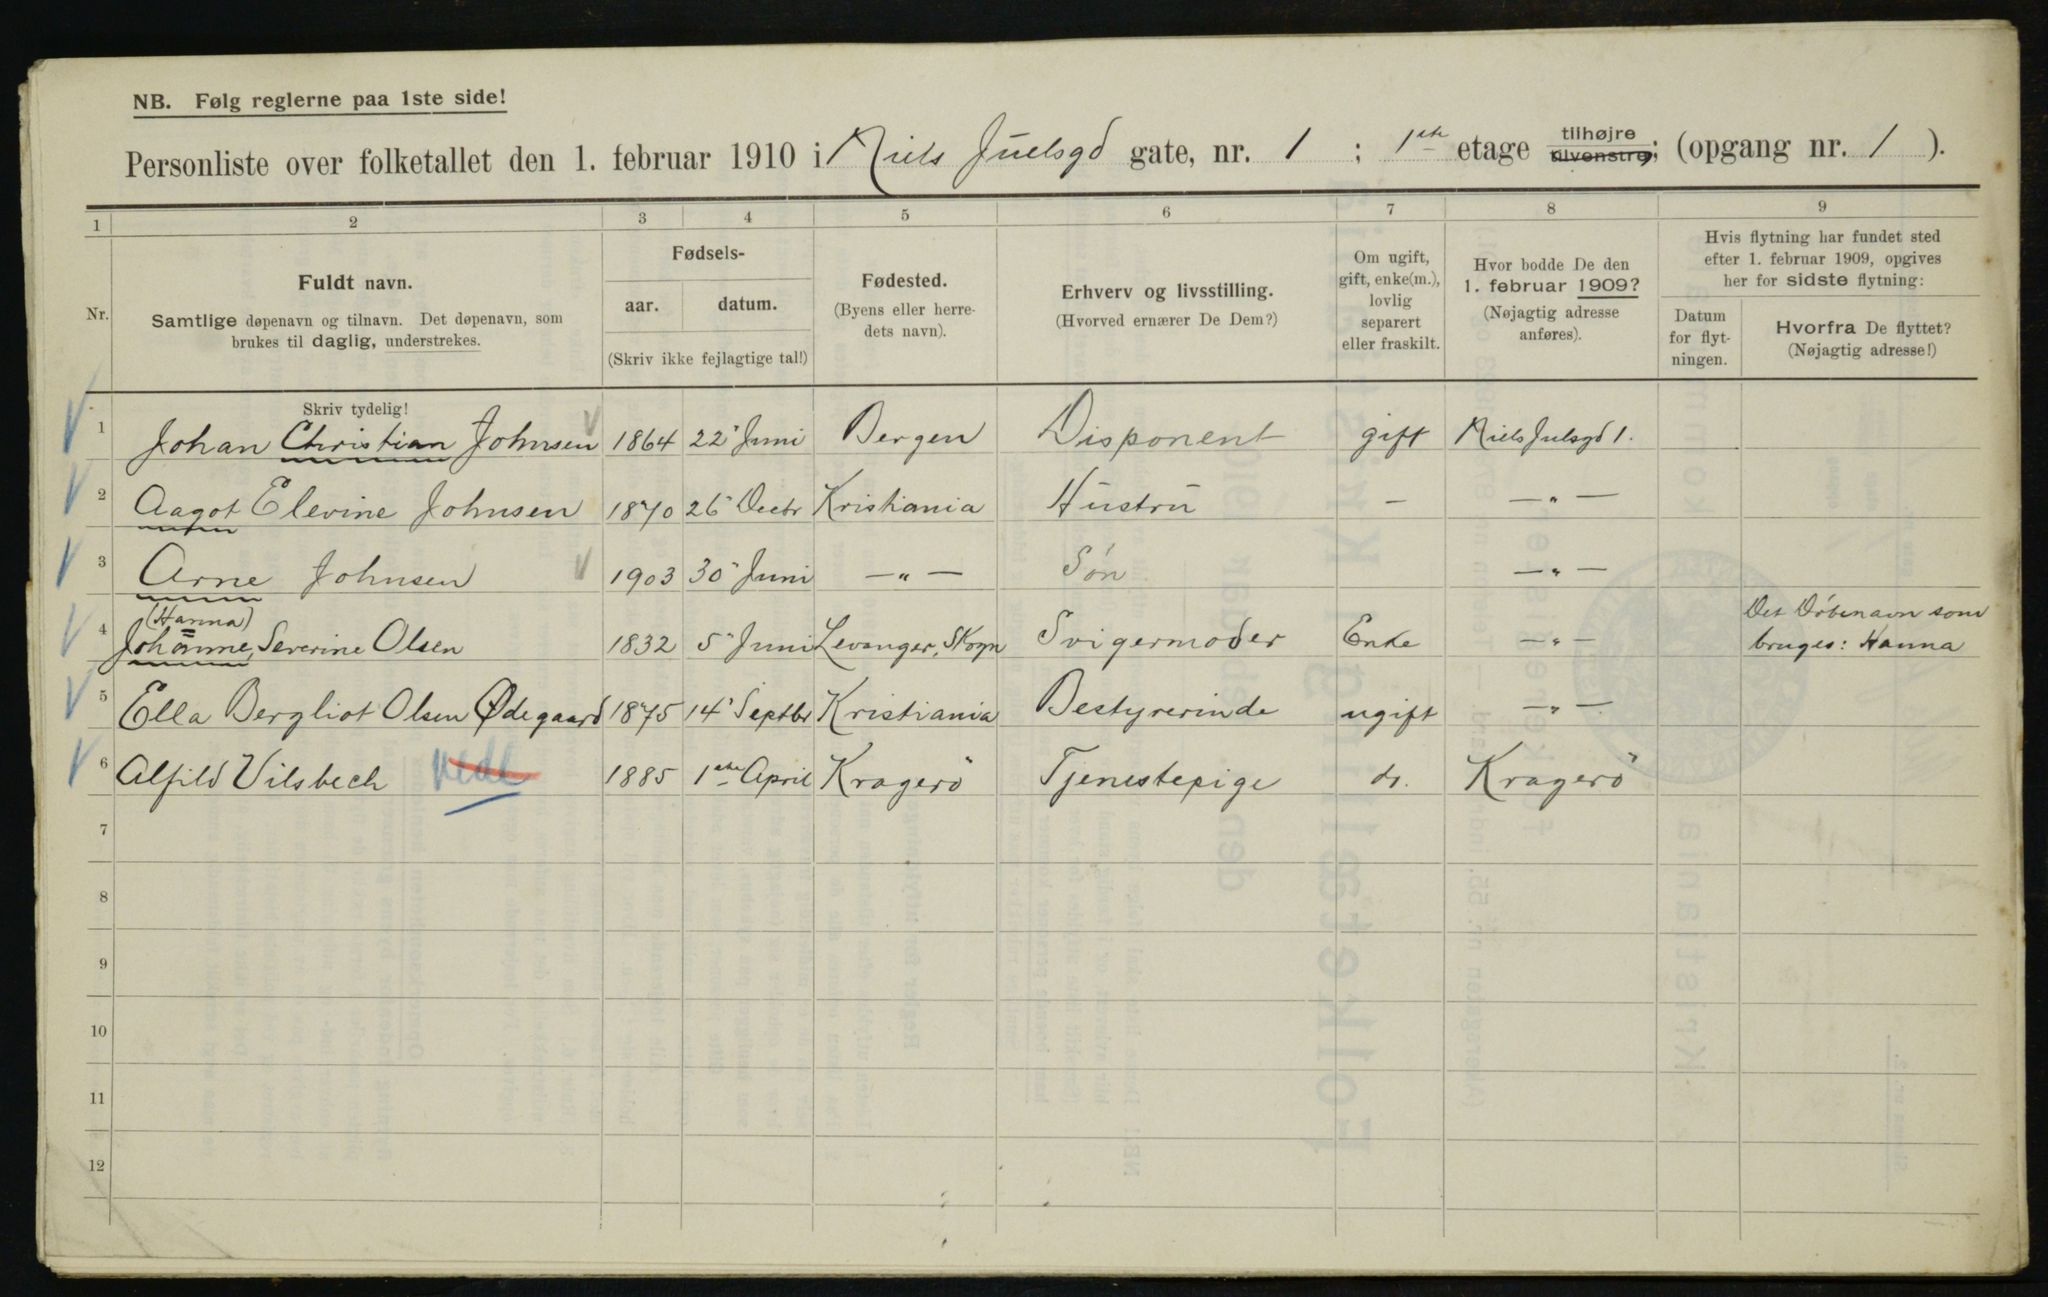 NB. Følg reglerne paa 1ste side!
Personliste over folketallet den 1. februar 1910 i Niels Juelsgd gate, nr. 1 ; 1ste etage tilhøjre tilvenstre; (opgang nr. 1 ).
1 2 3 4 5 6 7 8 9
Nr.
Fuldt navn.
Samtlige døpenavn og tilnavn. Det døpenavn, som
brukes til daglig, understrekes.
Skriv tydelig!
Fødsels-
aar. datum.
(Skriv ikke fejlagtige tal!)
Fødested.
(Byens eller herre-
dets navn).
Erhverv og livsstilling.
(Hvorved ernærer De Dem?)
Om ugift,
gift, enke(m.),
lovlig
separert
eller fraskilt.
Hvor bodde De den
1. februar 1909?
(Nøjagtig adresse
anføres).
Hvis flytning har fundet sted
efter 1. februar 1909, opgives
her for sidste flytning:
Datum
for flyt-
ningen.
Hvorfra De flyttet?
(Nøjagtig adresse!)
1 Johan Christian Johnsen 1864 22 Juni Bergen Disponent gift Niels Julsgd 1.
2 Aagot Elevine Johnsen 1870 26 Decbr Kristiania Hustru - -„-
3 Arne Johnsen 1903 30 Juni -„- Søn -„-
(Hanna) Det Döbenavn som
4 Johanne, Severine Olsen 1832 5 Juni Levanger, Skogn Svigermoder Enke -„- bruges: Hanna
5 Ella Bergliot Olsen Ødegaard 1875 14 Septbr Kristiania Bestyrerinde ugift -„-
6 Alfild Vilsbech 1885 1ste April Kragerö Tjenestepige do. Kragerö
7
8
9
10
11
12